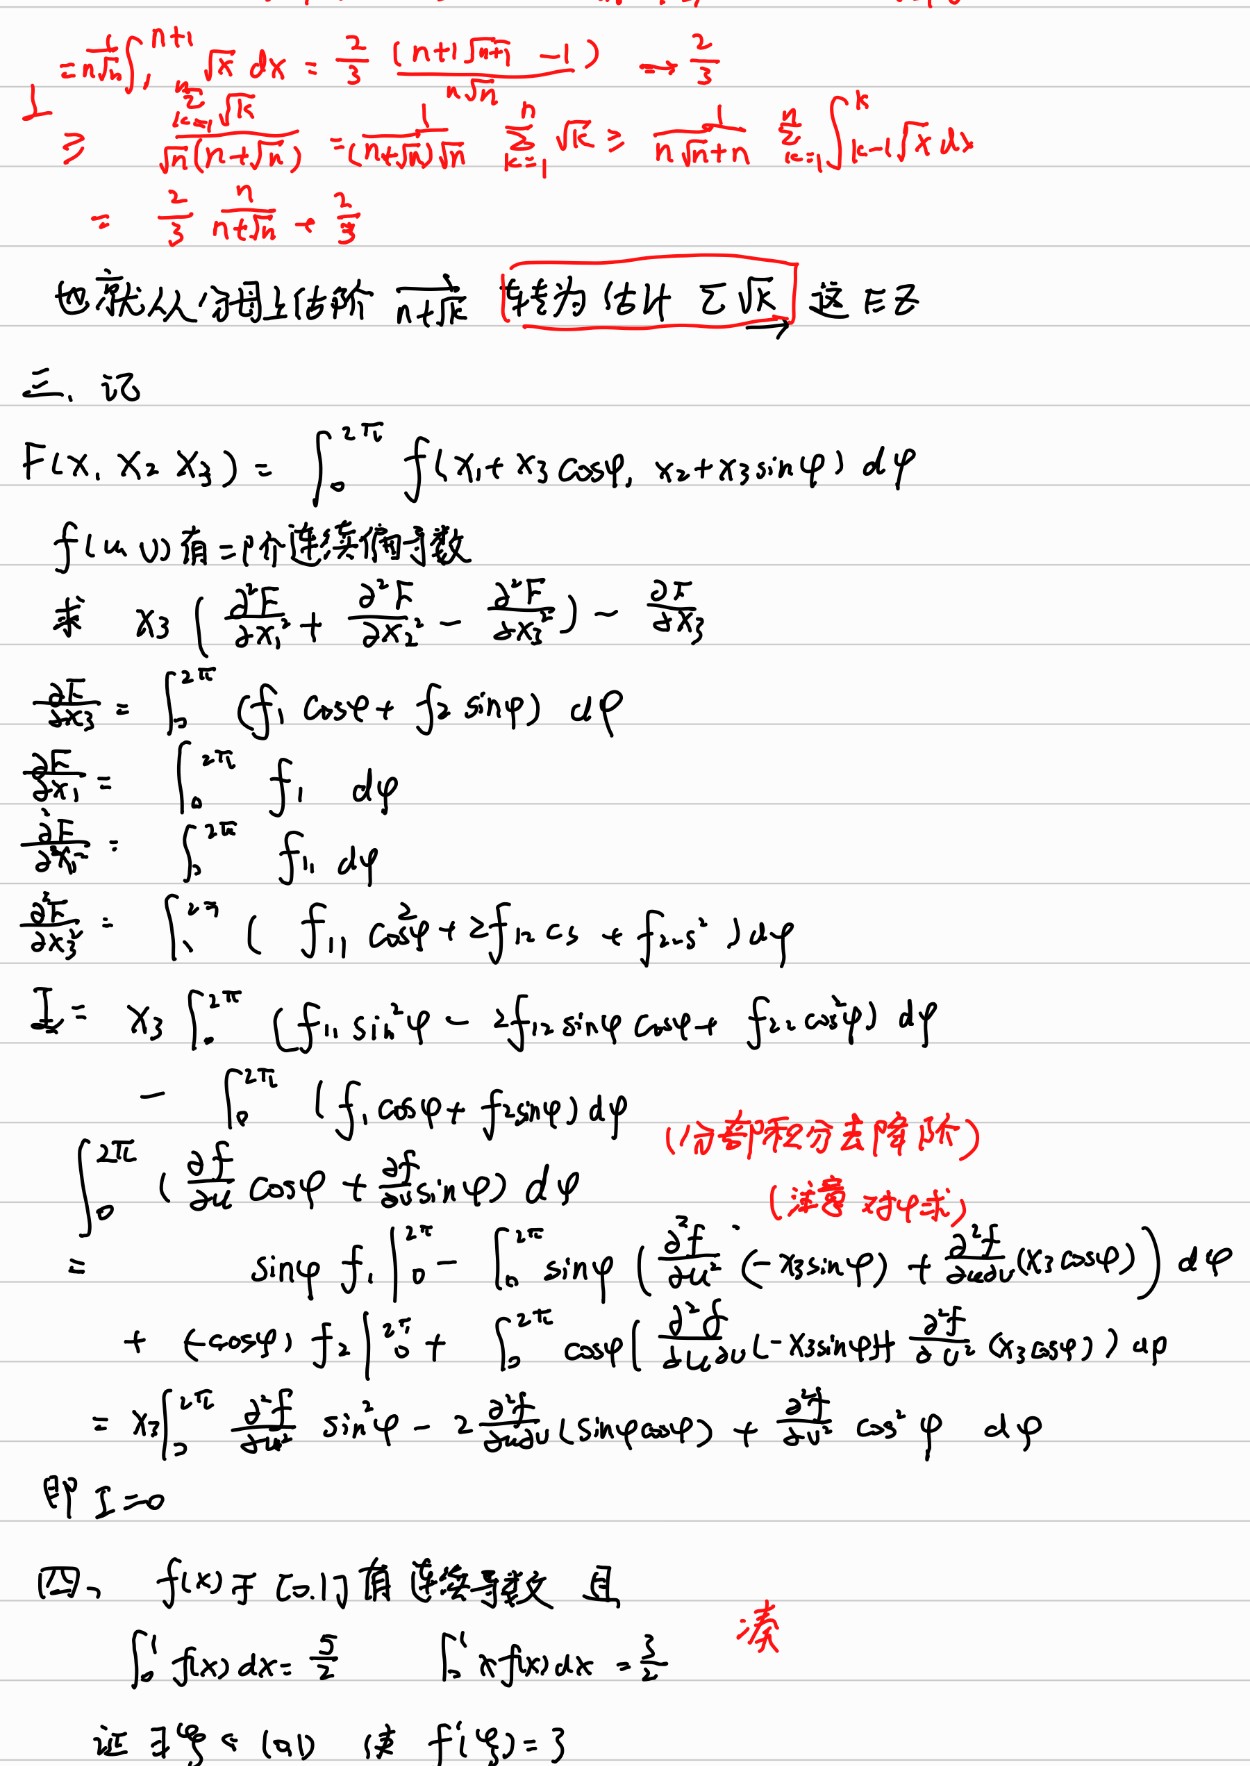 = 1/(n√n) ∫_1^{n+1} √x dx = 2/3 ((n+1)√(n+1) - 1)/(n√n) → 2/3
I ≥ (∑_{k=1}^n √k)/(√n(n+√n)) = 1/((n+√n)√n) ∑_{k=1}^n √k ≥ 1/(n√n+n) ∑_{k=1}^n ∫_{k-1}^k √x dx
= 2/3 n/(n+√n) → 2/3
也就从分母上估阶 1/(n+√k) 转为估计 ∑√k 这
三、记
F(x₁ x₂ x₃) = ∫_0^{2π} f(x₁+x₃cosφ, x₂+x₃sinφ) dφ
f(u v) 有二阶连续偏导数
求 x₃(∂²F/∂x₁² + ∂²F/∂x₂² - ∂²F/∂x₃²) - ∂F/∂x₃
∂F/∂x₃ = ∫_0^{2π} (f₁ cosφ + f₂ sinφ) dφ
∂F/∂x₁ = ∫_0^{2π} f₁ dφ
∂²F/∂x₁² = ∫_0^{2π} f₁₁ dφ
∂²F/∂x₃² = ∫_0^{2π} (f₁₁ cos²φ + 2f₁₂ cs + f₂₂s²) dφ
I = x₃ ∫_0^{2π} (f₁₁ sin²φ - 2f₁₂ sinφ cosφ + f₂₂ cos²φ) dφ
- ∫_0^{2π} (f₁ cosφ + f₂ sinφ) dφ
(分部积分去降阶)
∫_0^{2π} (∂f/∂u cosφ + ∂f/∂v sinφ) dφ
(注意对φ求)
= sinφ f₁ |_0^{2π} - ∫_0^{2π} sinφ (∂²f/∂u² (-x₃sinφ) + ∂²f/∂u∂v (x₃cosφ)) dφ
+ (-cosφ) f₂ |_0^{2π} + ∫_0^{2π} cosφ (∂²f/∂u∂v (-x₃sinφ) + ∂²f/∂v² (x₃cosφ)) dφ
= x₃ ∫_0^{2π} ∂²f/∂u² sin²φ - 2 ∂²f/∂u∂v (sinφcosφ) + ∂²f/∂v² cos²φ dφ
即 I = 0
四、 f(x)于[0.1]有连续导数 且
∫_0^1 f(x)dx = 5/2 ∫_0^1 xf(x)dx = 3/2 凑
证 ∃ξ ∈ (0 1) 使 f'(ξ) = 3